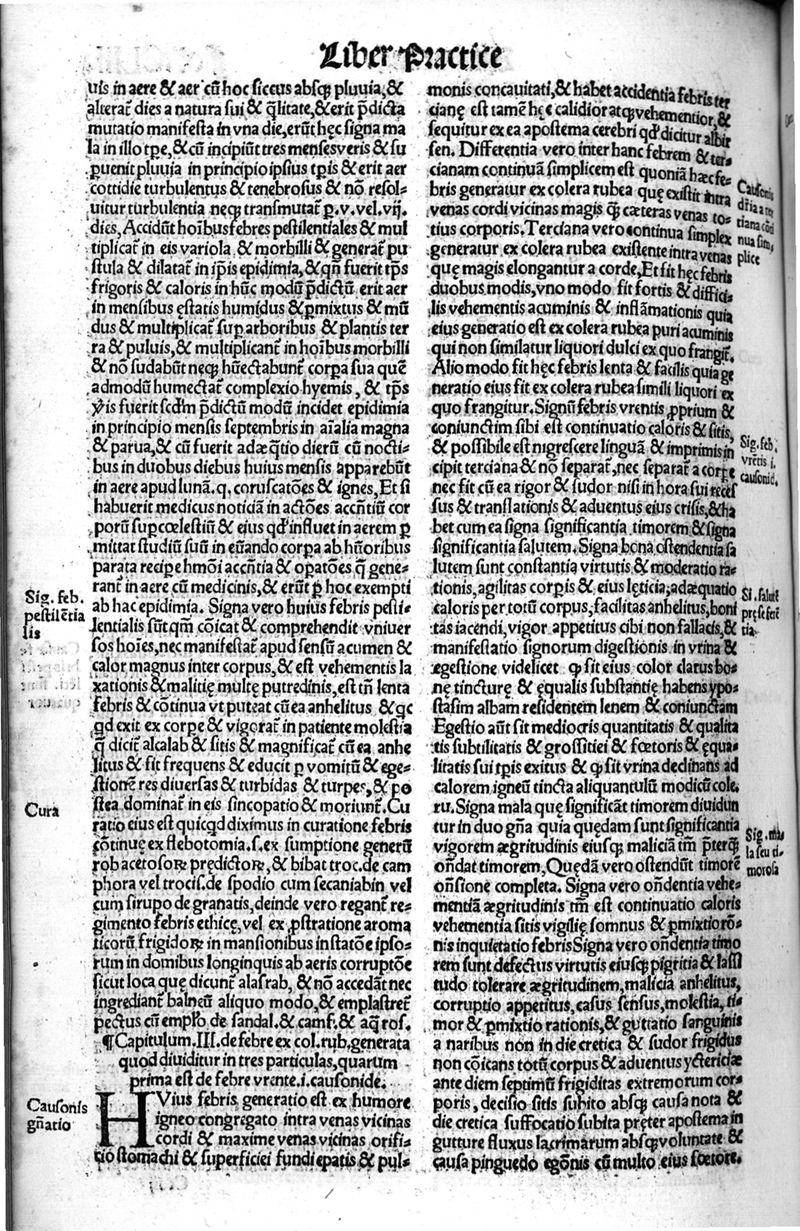 Liber Practice
uis in aere & aer cū hoc siccus absq; pluuia, &
alterat̃ dies a natura sui & q̃litate, & erit p̃dicta
mutatio manifesta in vna die, erũt hęc signa ma
la in illo tp̃e, & cū incipiũt tres menses veris & su
puenit pluuia in principio ipsius tp̃is & erit aer
cottidie turbulentus & tenebrosus & nō resol-
uitur turbulentia neq; transmutat̃ p̱. v. vel. vij.
dies, Accidũt hoĩbus febres pestilentiales & mul
tiplicat̃ in eis variola & morbilli & generat̃ pu
stula & dilatat̃ in ip̃is epidimia, & qñ fuerit tp̃s
frigoris & caloris in hũc modũ p̃dictũ erit aer
in mensibus ęstatis humidus & p̱mixtus & mũ
dus & multiplicat̃ sup arboribus & plantis ter
ra & puluis, & multiplicant̃ in hoĩbus morbilli
& nō sudabũt neq; hũectabunt̃ corpa sua quē
admodũ humectat̃ complexio hyemis, & tp̃s
fuerit scd̃m p̃dictũ modũ incidet epidimia
in principio mensis septembris in aĩalia magna
& parua, & cũ fuerit adæq̃tio dierũ cũ nocti-
bus in duobus diebus huius mensis apparebũt
in aere apud lunã. q. coruscatōes & ignes, Et si
habuerit medicus noticiã in actōes accñtiũ cor
porũ sup cœlestiũ & eius qd̃ influet in aerem p̱
mittat studiũ suũ in euãdo corpa ab hũoribus
parata recipe hmōi accñtia & opatōes q̃ gene-
rant̃ in aere cũ medicinis, & erũt p̱ hoc exempti
ab hac epidimia. Signa vero huius febris pesti-
Sig. feb.
pestilẽtia
lis
lentialis sũt qm̃ cōicat & comprehendit vniuer
sos hoĩes, nec manifestat̃ apud sensũ acumen &
calor magnus inter corpus, & est vehementis la
xationis & malitię multę putredinis, est tñ lenta
febris & cōtinua vt puteat cũ ea anhelitus & qc
qd exit ex corpe & vigorat̃ in patiente molestia
q̃ dicit̃ alcalab & sitis & magnificat̃ cũ ea anhe
litus & fit frequens & educit p̱ vomitũ & ege-
stionẽ res diuersas & turbidas & turpes, & po
stea dominat̃ in eis sincopatio & moriunt̃. Cu
Cura
ratio eius est quicqd diximus in curatione febris
cōtinuę ex flebotomia. s. ex sumptione generũ
rob acetosoꝝ prędictoꝝ, & bibat troc. de cam
phora vel trocis. de spodio cum secaniabin vel
cum sirupo de granatis, deinde vero regant̃ re-
gimento febris ethicę, vel ex p̱stratione aroma
ticorũ frigidoꝝ in mansionibus instatōe ipso-
rum in domibus longinquis ab aeris corruptōe
sicut loca quę dicunt̃ alasrab, & nō accedãt nec
ingrediant̃ balneũ aliquo modo, & emplastret̃
pectus cũ emplr̃o de sandal. & camf. & aq̃ ros.
¶Capitulum. III. de febre ex col. rub, generata
quod diuiditur in tres particulas, quarum
prima est de febre vrente. i. causonide.
Causonis
gñatio
HVius febris generatio est ex humore
igneo congregato intra venas vicinas
cordi & maxime venas vicinas orifi-
tio stomachi & superficiei fundi epatis & pul-
monis concauitati, & habet accidentia febris ter
cianę est tamẽ hęc calidior atq; vehementior, &
sequitur ex ea apostema cerebri qd̃ dicitur albir
sen. Differentia vero inter hanc febrem & ter-
cianam continuã simplicem est quoniã hæc fe-
Causonis
dr̃ia a ter
tiana cōti
nua sim-
plice
bris generatur ex colera rubea quę existit intra
venas cordi vicinas magis q̃ cæteras venas to-
tius corporis, Terciana vero continua simplex
generatur ex colera rubea existente intra venas
quę magis elongantur a corde, Et fit hęc febris
duobus modis, vno modo fit fortis & difficī-
lis vehementis acuminis & inflãmationis quia
eius generatio est ex colera rubea puri acuminis
qui non similatur liquori dulci ex quo frangit̃.
Alio modo fit hęc febris lenta & facilis quia ge
neratio eius fit ex colera rubea simili liquori ex
quo frangitur. Signũ febris vrentis p̱prium &
Sig. feb.
vrẽtis i.
causonid.
coniunctim sibi est continuatio caloris & sitis,
& possibile est nigrescere linguã & imprimis in
cipit terciana & nō separat̃, nec separat̃ a corpe
nec fit cũ ea rigor & sudor nisi in hora sui reces
sus & translationis & aduentus eius crisis, & ha
bet cum ea signa significantia timorem & signa
significantia salutem. Signa bona ostendentia sa
lutem sunt constantia virtutis & moderatio ra-
tionis, agilitas corpis & eius lęticia; adæquatio
Si. salutẽ
pręse ferẽ
tia
caloris per totũ corpus, facilitas anhelitus, boni
tas iacendi, vigor appetitus cibi non fallacis, &
manifestatio signorum digestionis in vrina &
egestione videlicet ꝙ sit eius color datus bo-
nę tincturę & ęqualis substantię habens ypo-
stasim albam residentem lenem & coniunctam
Egestio aũt sit mediocris quantitatis & qualita
tis subtilitatis & grossitiei & fœtoris & ęqua-
litatis sui tp̃is exitus & ꝙ sit vrina declinans ad
calorem igneũ tincta aliquantulũ modicũ cole.
ru. Signa mala quę significãt timorem diuidun
tur in duo gña quia quędam sunt significantia
Sig. ma
la seu ti-
morosa
vigorem ægritudinis eiusq; maliciã tm̃ p̃terq;
oñdat timorem, Quędã vero ostendũt timorẽ
oñsione completa. Signa vero oñdentia vehe-
mentiã ægritudinis tm̃ est continuatio caloris
vehementia sitis vigilię somnus & p̱mixtio rō-
nis inquietatio febris Signa vero oñdentia timo
rem sunt defectus virtutis eiusq; pigritia & lassi
tudo tolerare ægritudinem, malicia anhelitus,
corruptio appetitus, casus sensus, molestia, ti-
mor & p̱mixtio rationis, & guttatio sanguinis
a naribus non in die cretica & sudor frigidus
non cōicans totũ corpus & aduentus yctericiæ
ante diem septimũ frigiditas extremorum cor-
poris, decisio sitis subito absq; causa nota &
die cretica suffocatio subita pręter apostema in
gutture fluxus lacrimarum absq; voluntate &
causa pinguedo egōnis cũ multo eius fœtore.